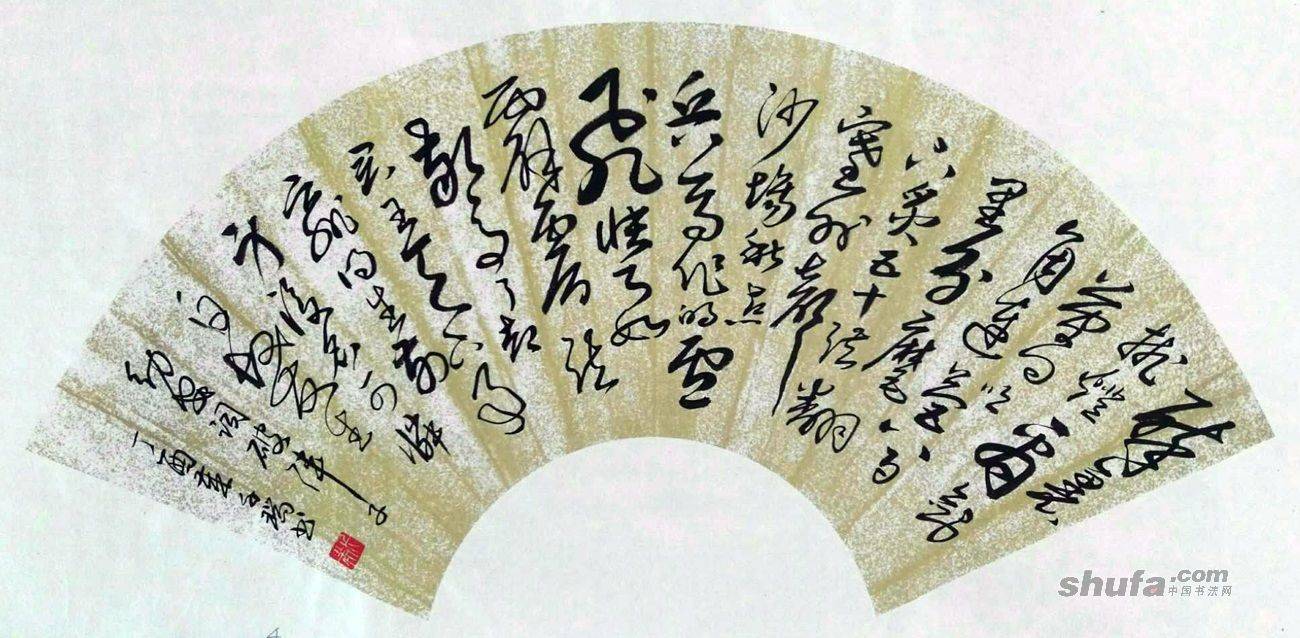 醉里
挑灯看剑
梦回吹角
连营八百
里分麾
下炙五十弦翻
塞外声
沙场秋点
兵马作的卢
飞快弓如
霹雳弦
惊
了却
君王天下事
赢得生前
身后名可怜
白发生
稼轩词破阵子
丁酉
书
shufa.com
中国书法网